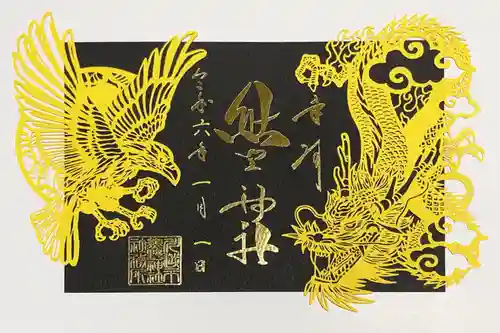 奉拝
熊野神社
令和六年一月一日